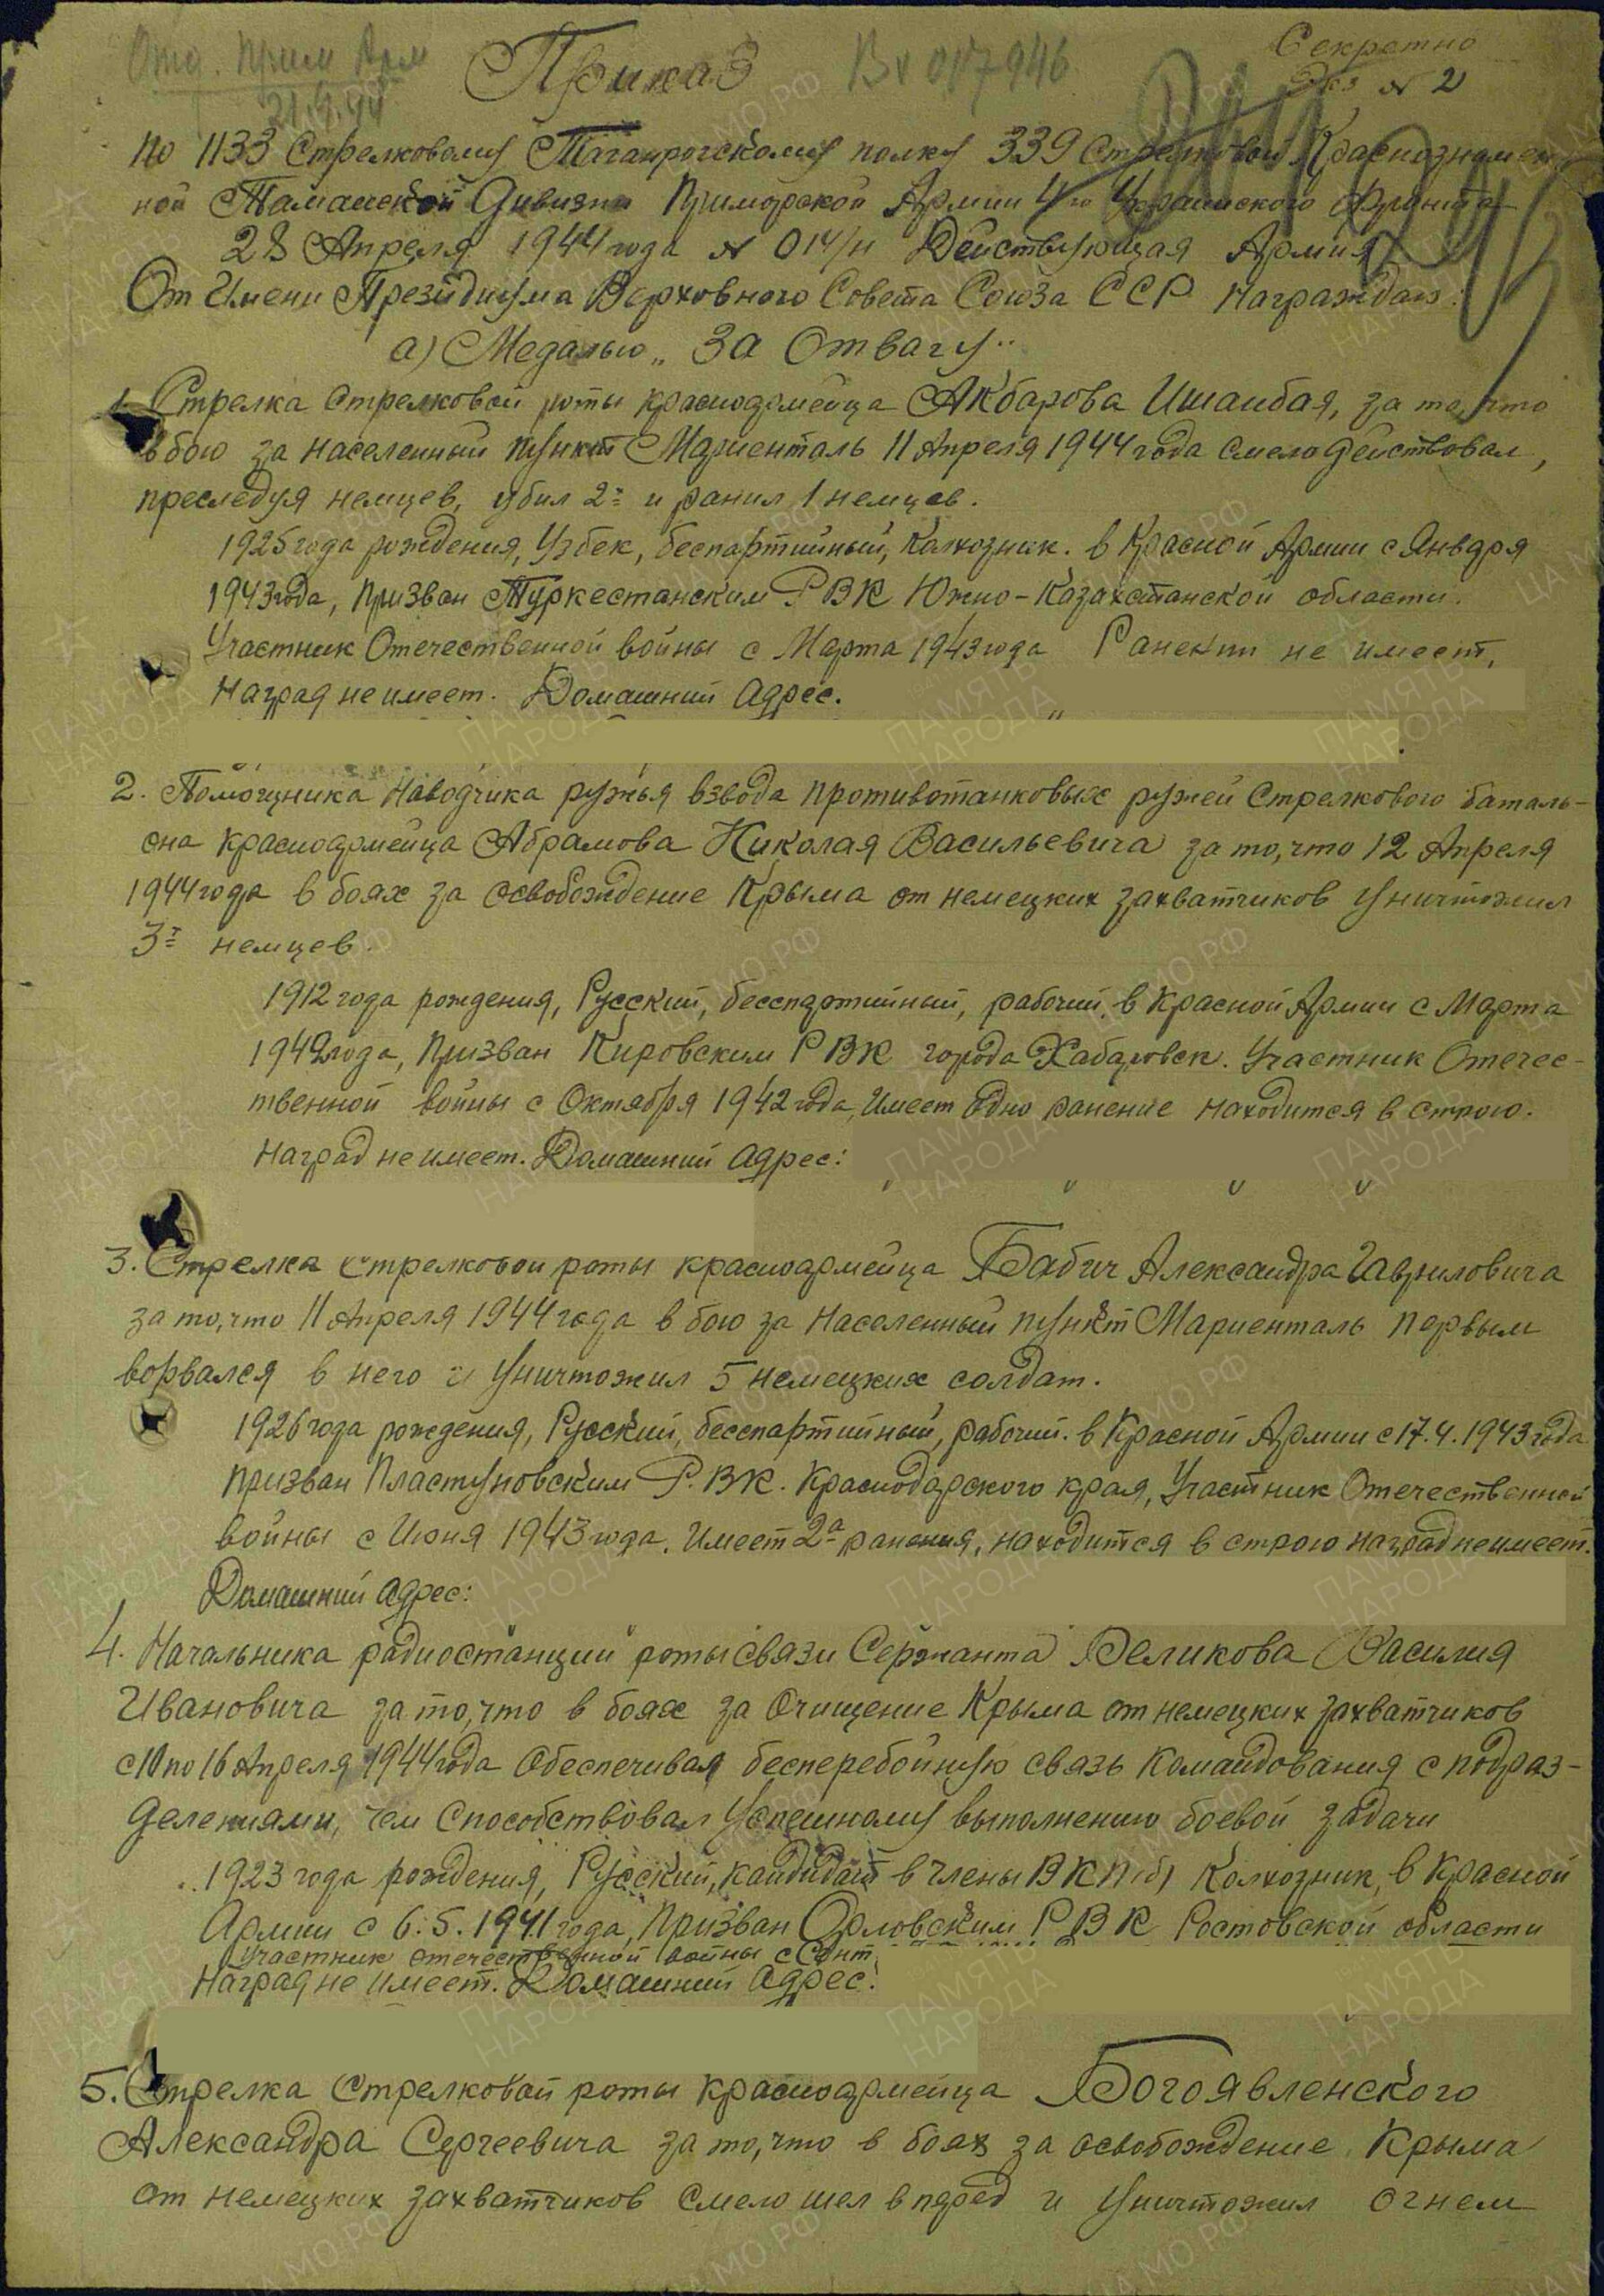 Отд. Прим Арм
21.4.44
Приказ
Вх 017946
Секретно
Экз № 2
По 1133 Стрелковому Таганрогскому полку 339 Стрелковой Краснознамен
ной Таманской Дивизии Приморской Армии 4го Украинского Фронта
28 Апреля 1944 года № 014/н Действующая Армия
От Имени Президиума Верховного Совета Союза ССР Награждаю:
а) Медалью „За Отвагу"
1. Стрелка Стрелковой роты красноармейца Акбарова Ишанбая, за то, что
в бою за населенный пункт Мариенталь 11 Апреля 1944 года смело действовал,
преследуя немцев, убил 2х и ранил 1 немцев.
1925 года рождения, Узбек, беспартийный, колхозник. в Красной Армии с Января
1943 года, призван Туркестанским РВК Южно-Казахстанской области.
Участник Отечественной войны с Марта 1943 года Ранений не имеет,
Наград не имеет. Домашний адрес.
2. Помощника Наводчика ружья взвода противотанковых ружей Стрелкового баталь-
она красноармейца Абрамова Николая Васильевича за то, что 12 Апреля
1944 года в боях за освобождение Крыма от немецких захватчиков уничтожил
3х немцев.
1912 года рождения, Русский, бесспартийный, рабочий, в Красной Армии с Марта
1942 года, Призван Кировским РВК города Хабаровск. Участник Отечес-
твенной войны с Октября 1942 года, Имеет одно ранение находится в строю.
Наград не имеет. Домашний адрес:
3. Стрелка стрелковой роты красноармейца Бабич Александра Гавриловича
за то, что 11 Апреля 1944 года в бою за населенный пункт Мариенталь первым
ворвался в него и уничтожил 5 немецких солдат.
1926 года рождения, Русский, бесспартийный, рабочий. в Красной Армии с 17.4.1943 года
призван Пластуновским Р.В.К. Краснодарского края, Участник Отечественной
войны с Июня 1943 года. Имеет 2а ранения, находится в строю наград не имеет.
Домашний адрес:
4. Начальника радиостанции роты связи Сержанта Великова Василия
Ивановича за то, что в боях за Очищение Крыма от немецких захватчиков
с 10 по 16 Апреля 1944 года Обеспечивал бесперебойную связь командования с подраз-
делениями, чем способствовал успешному выполнению боевой задачи
1923 года рождения, Русский, кандидат в члены ВКП(б) колхозник, в Красной
Армии с 6.5.1941 года, Призван Орловским РВК Ростовской области
Участник отечественной войны с Сент.
Наград не имеет. Домашний адрес:
5. Стрелка Стрелковой роты красноармейца Богоявленского
Александра Сергеевича за то, что в боях за освобождение Крыма
от немецких захватчиков смело шел вперед и уничтожил огнем